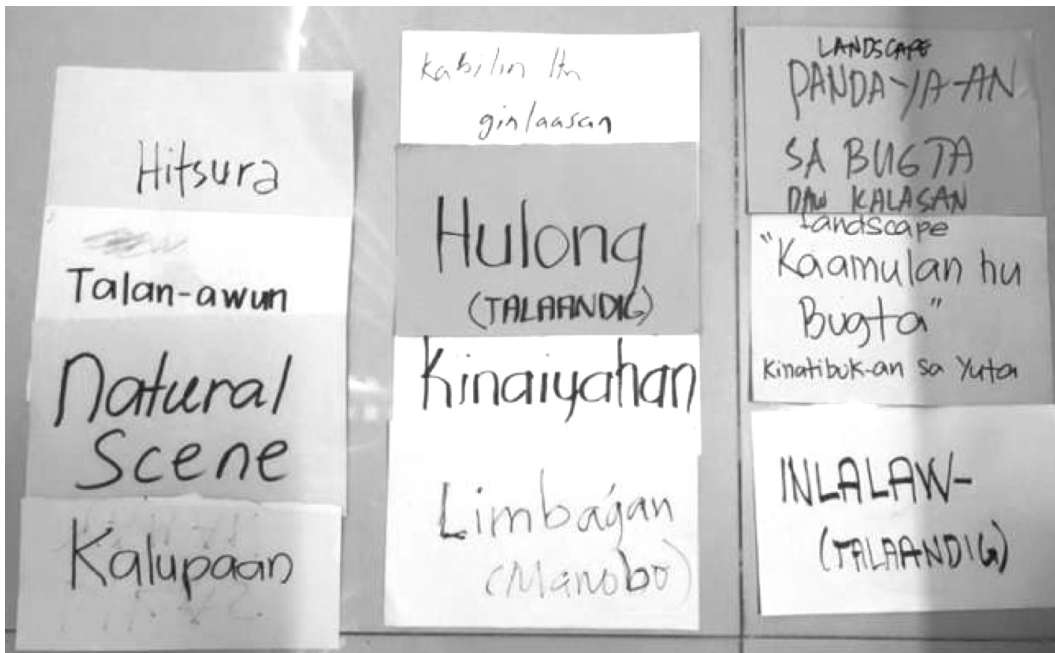 Hitsura
Talan-awun
Natural
Scene
Kalupaan
Kabilin Itn
ginlaasan
Hulong
(TALAANDIG)
Kinaiyahan
Limbagan
(Manobo)
LANDSCAPE
PANDA-YA-AN
SA BUGTA
DAW KALASAN
Landscape
"Kaamulan hu
Bugta"
Kinatibuk-an sa Yuta
INLALAW-
(TALAANDIG)